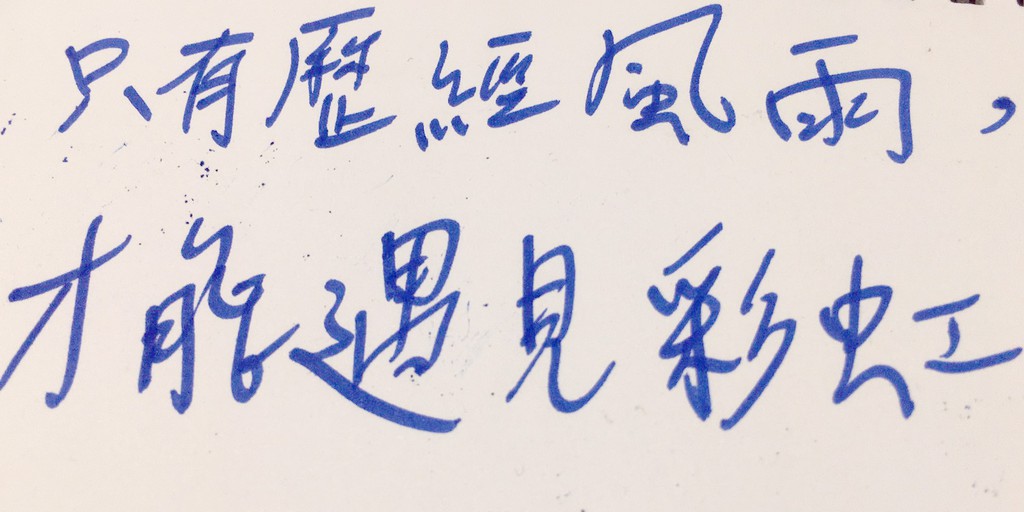 只有歷經風雨，
才能遇見彩虹